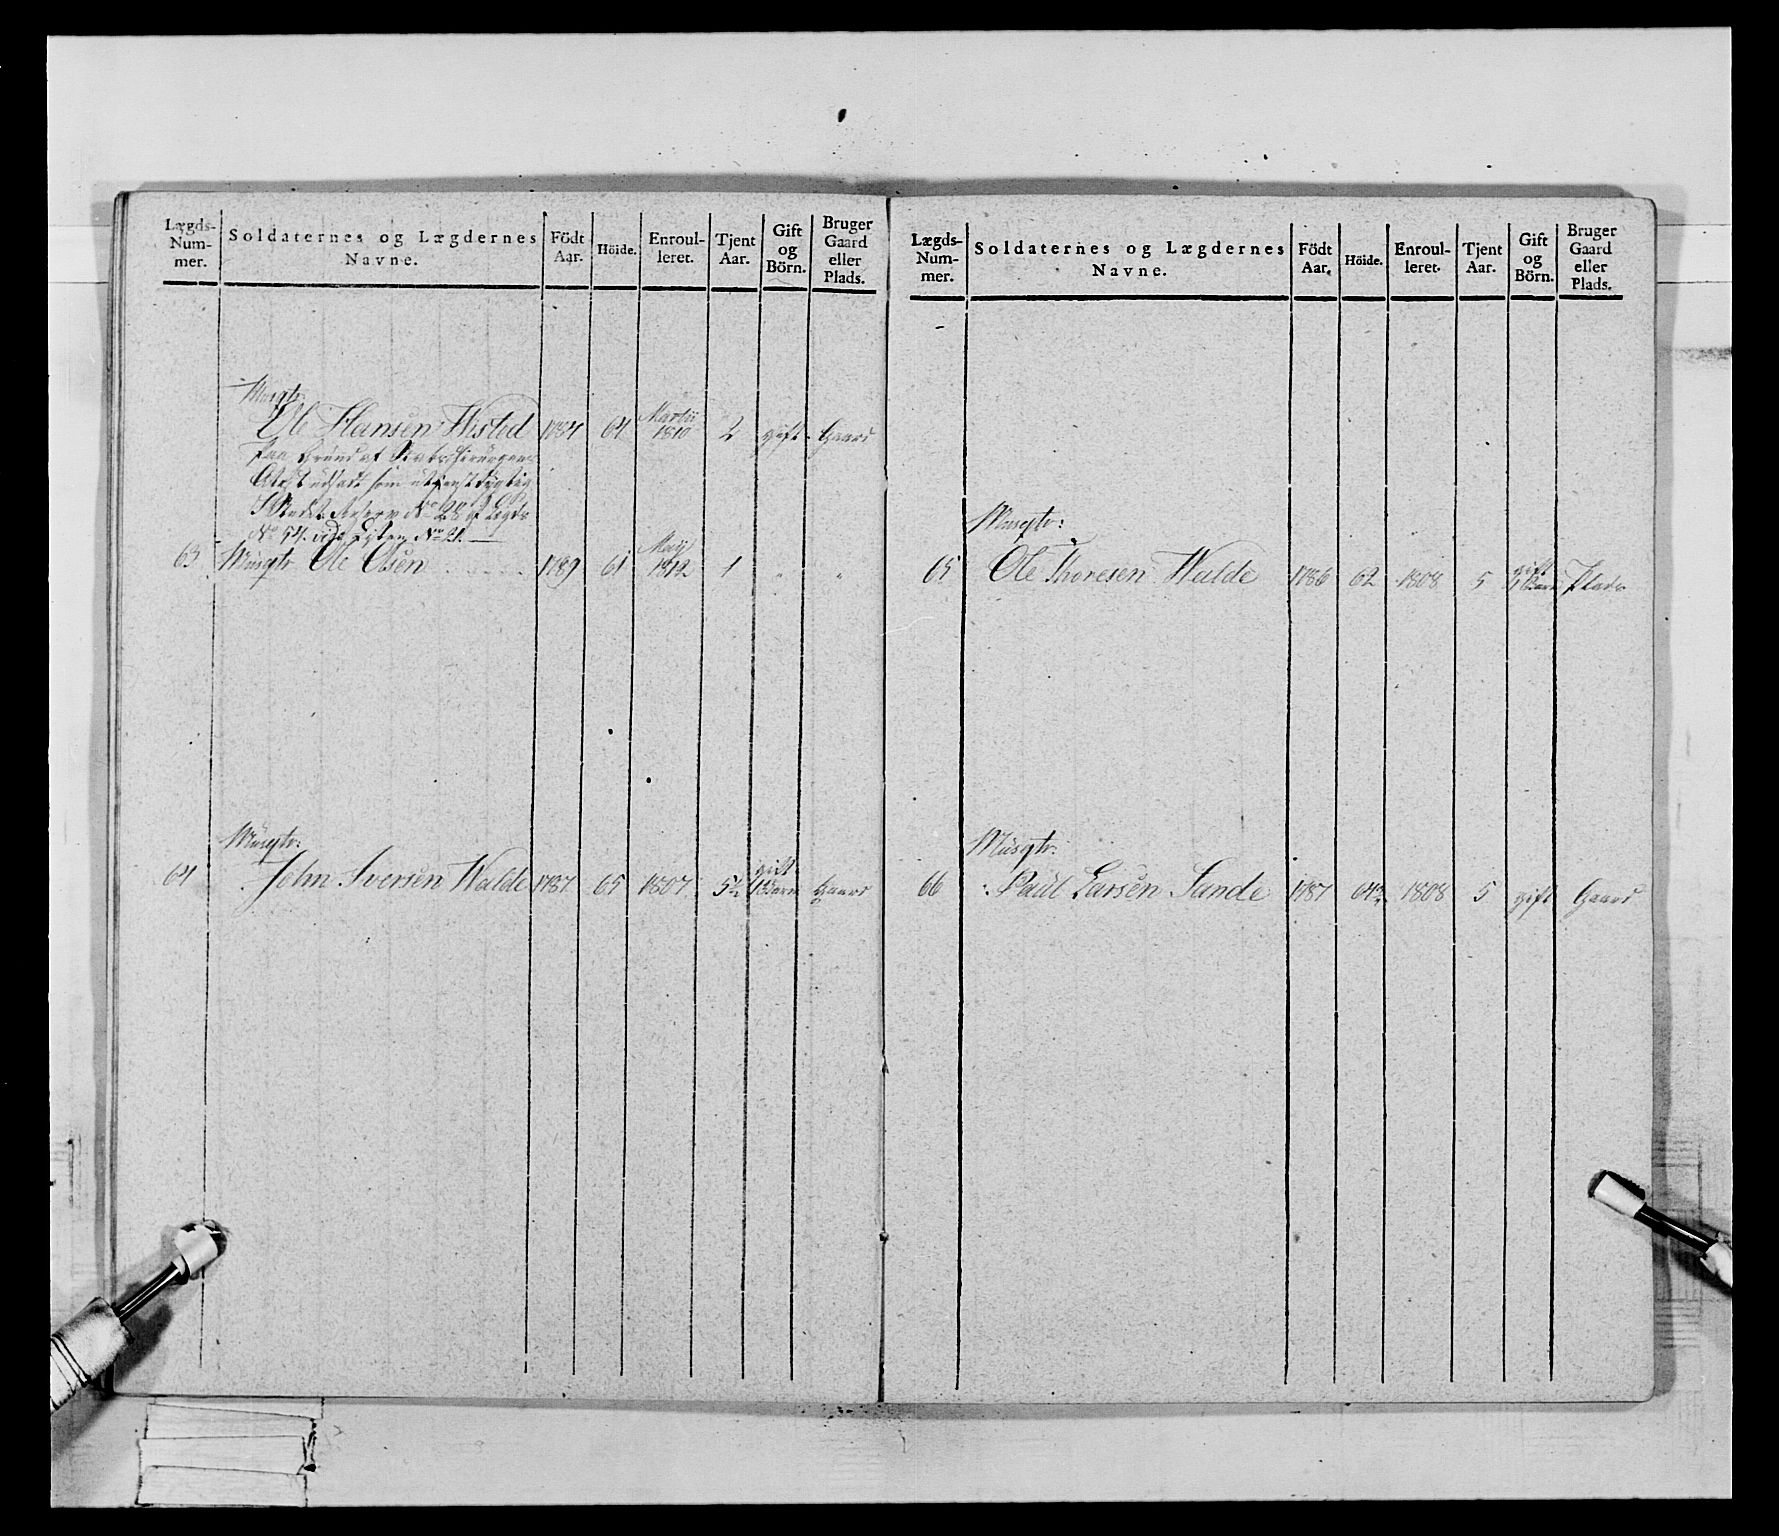 Lægds-Num-mer. Soldaternes og Lægdernes Navne. Födt Aar. Höide. Enroul-leret. Tjent Aar. Gift og Börn. Bruger Gaard eller Plads.
Musqtr:
Ole Hansen Wisted 1784 64 Martii 1810 2 gift Gaard
paa Grund af
Attest udsadt som utjenstdygtig
No 28 af Lægds
No 54. vide Listen No 21.
63 Musqtr Ole Olsen 1789 61 Maij 1812 1 " "
Musqtr:
64 John Iversen Walde 1787 65 1807 5½ gift 1 Barn Gaard
Lægds-Num-mer. Soldaternes og Lægdernes Navne. Födt Aar. Höide. Enroul-leret. Tjent Aar. Gift og Börn. Bruger Gaard eller Plads.
Musqtr:
65 Ole Thoresen Walde 1786 62 1808 5 gift 1 Barn Plads
Musqtr:
66 Paul Larsen Sande 1787 64½ 1808 5 gift Gaard